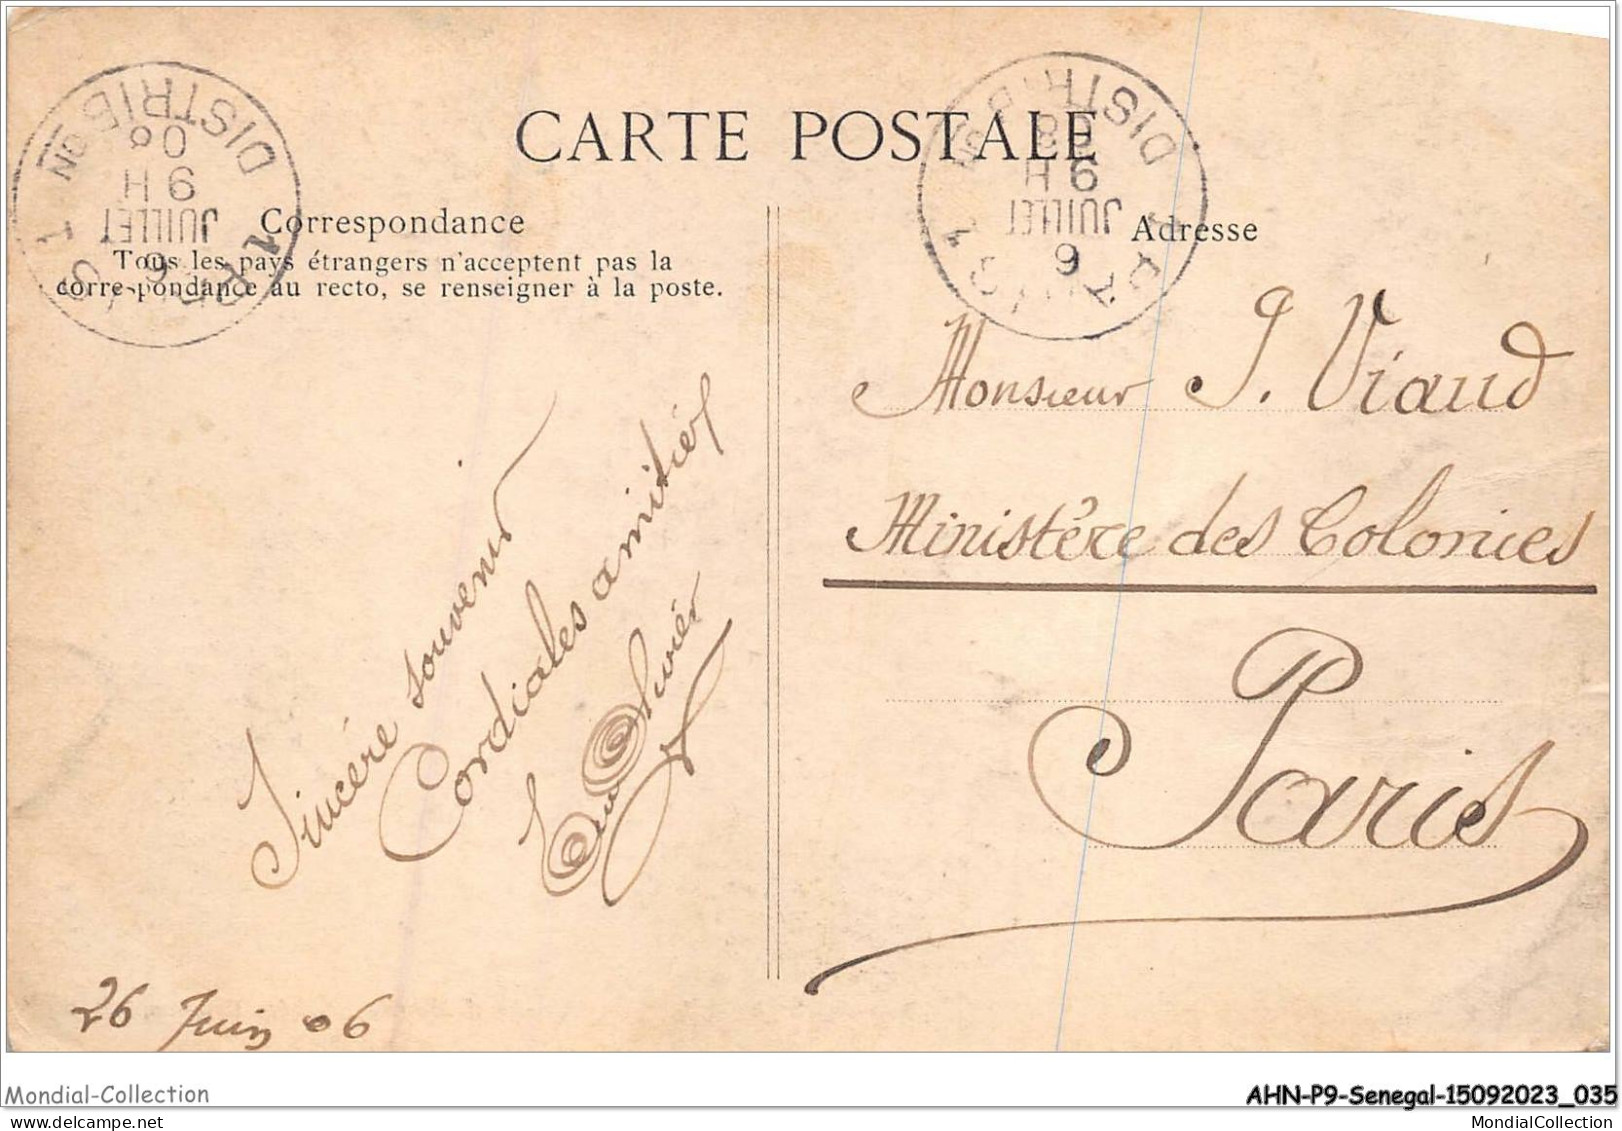 CARTE POSTALE
Correspondance
Tous les pays étrangers n'acceptent pas la
correspondance au recto, se renseigner à la poste.
Sincère souvenir
Cordiales amitiés
Olivier
26 Juin 06
Adresse
Monsieur J. Viaud
Ministère des Colonies
Paris
DISTRIBON
06
9 H
JUILLET
6
PARIS 1
DISTRIB
9 H
JUILLET
6
Mondial-Collection
AHN-P9-Senegal-15092023_035
MondialCollection